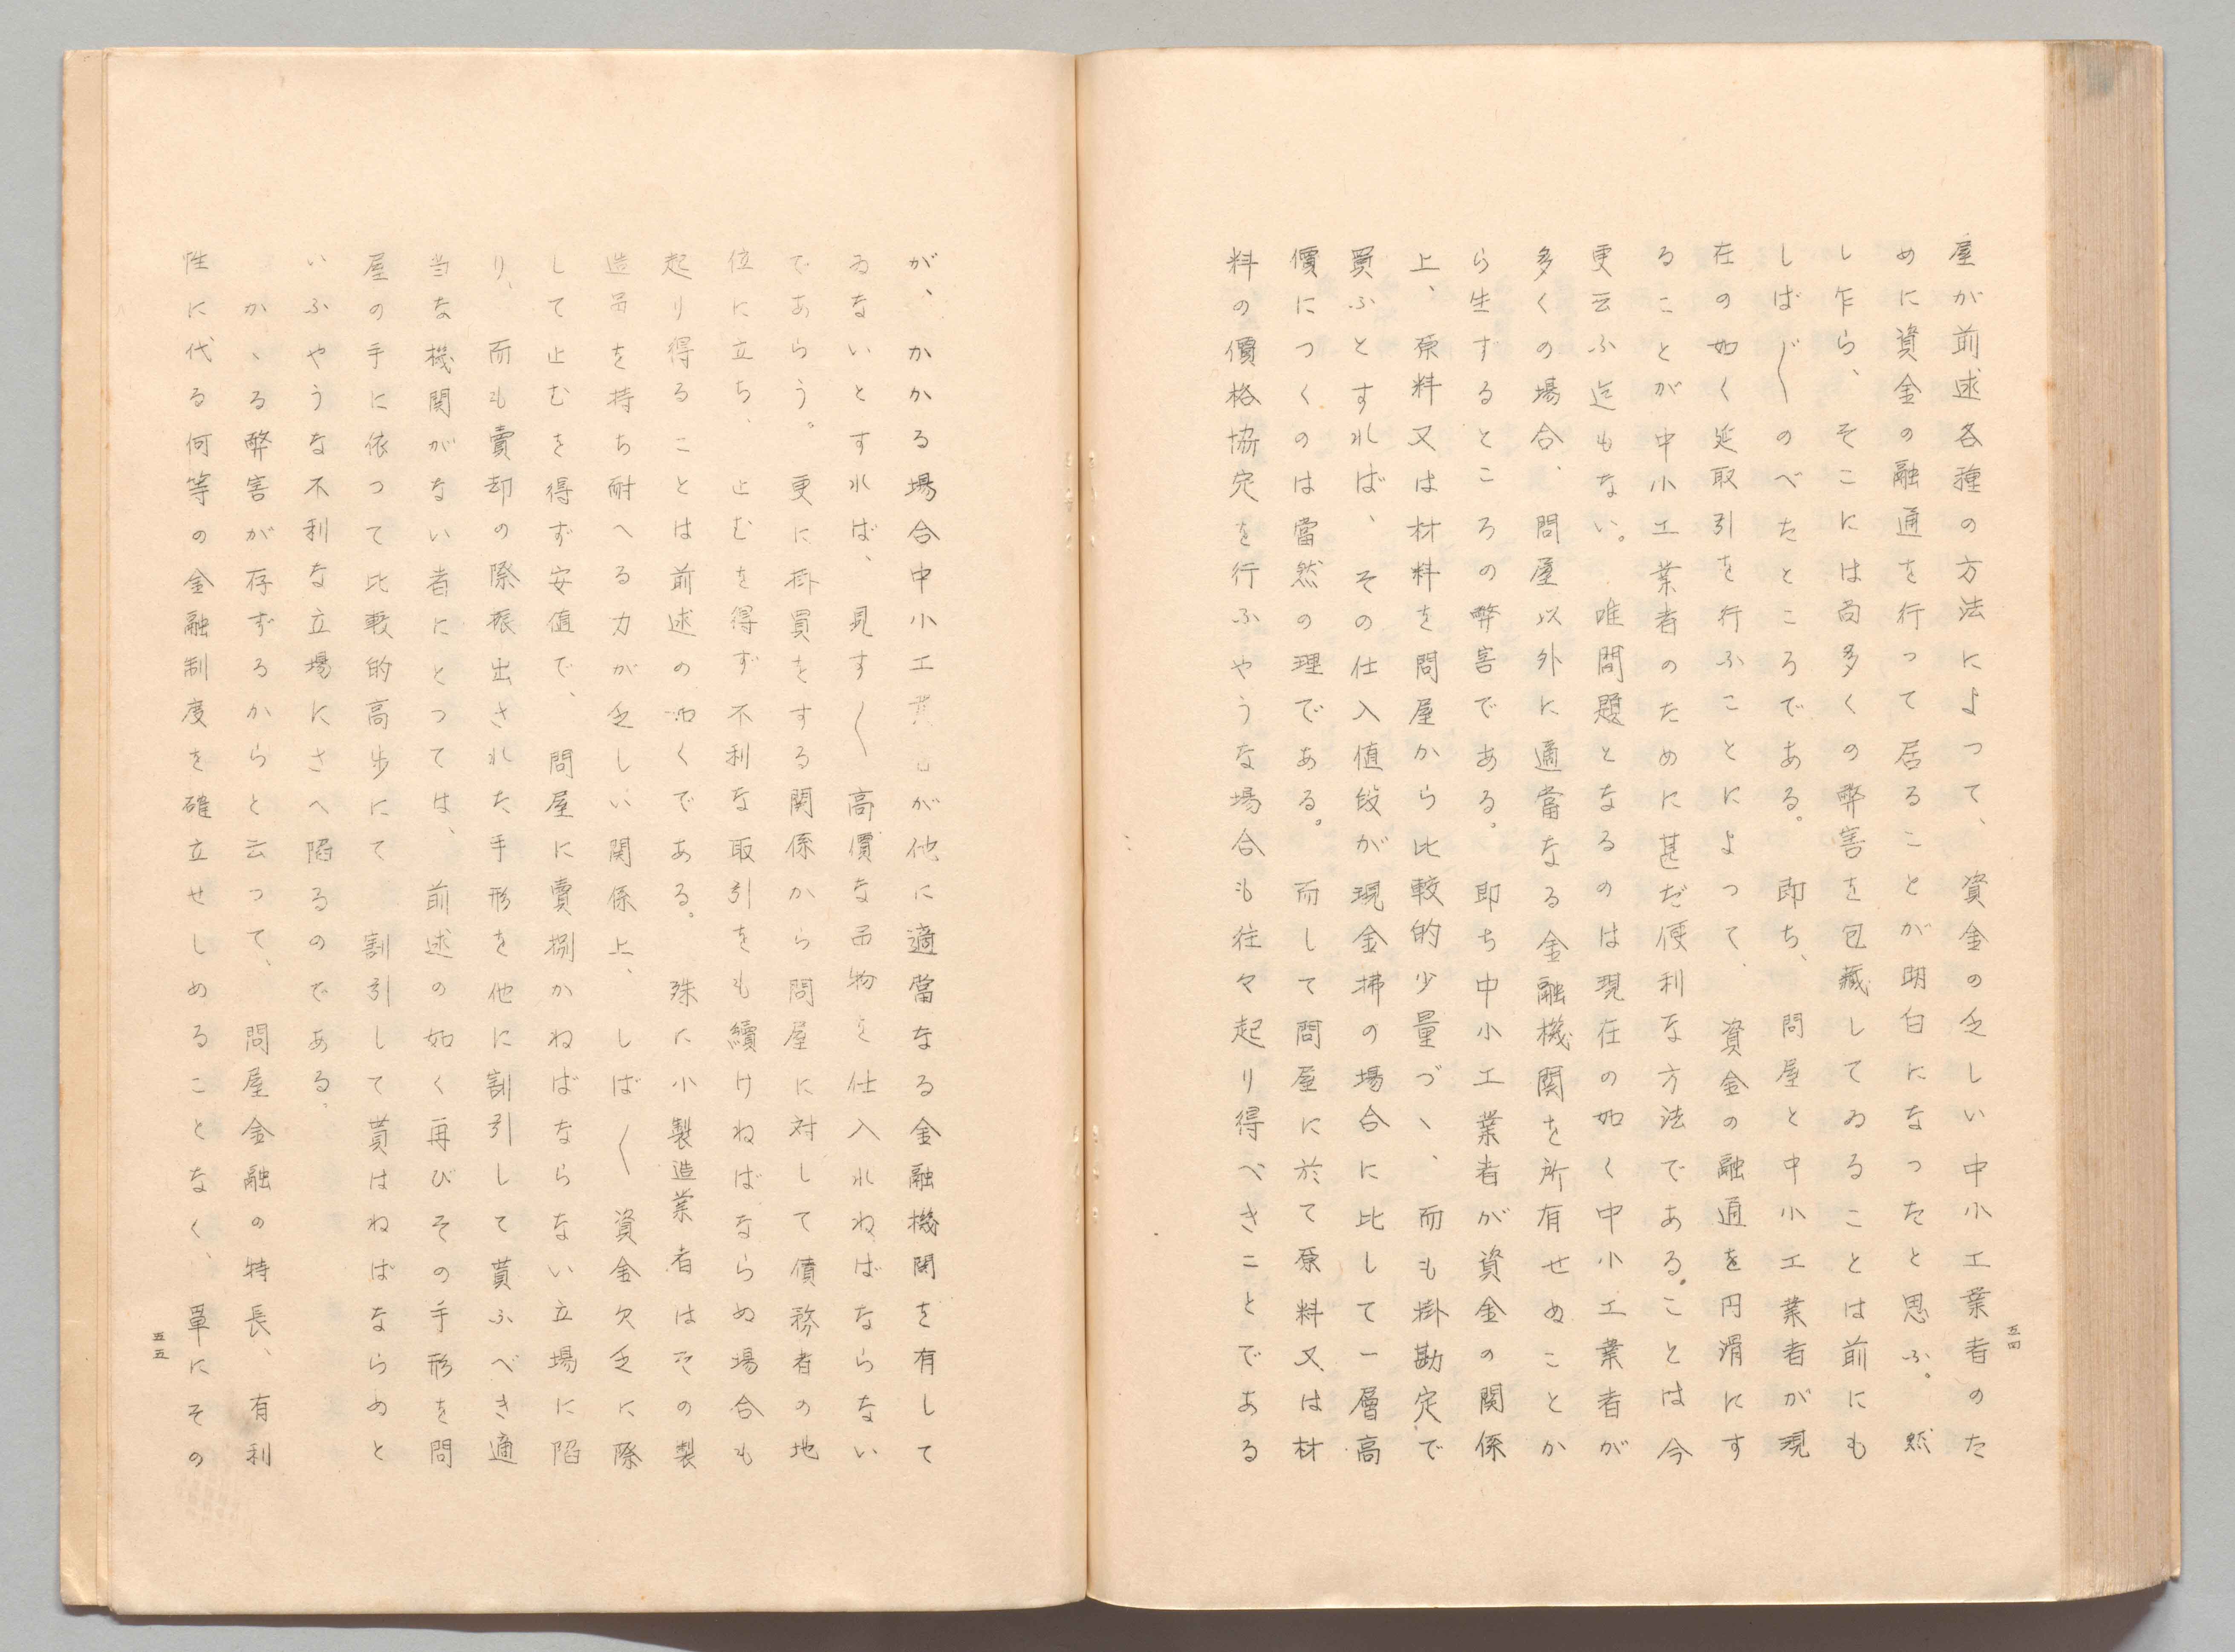 屋が前述各種の方法によつて、資金の乏しい中小工業者のた
めに資金の融通を行つて居ることが明白になつたと思ふ。然
し乍ら、そこには尚多くの弊害を包藏してゐることは前にも
しば〲のべたところである。即ち、問屋と中小工業者が現
在の如く延取引を行ふことによつて、資金の融通を円滑にす
ることが中小工業者のために甚だ便利な方法である。ことは今
更云ふ迄もない。唯問題となるのは現在の如く中小工業者が
多くの場合、問屋以外に適當なる金融機関を所有せぬことか
ら生ずるところの弊害である。即ち中小工業者が資金の関係
上、原料又は材料を問屋から比較的少量づヽ、而も掛勘定で
買ふとすれば、その仕入値段が現金拂の場合に比して一層高
價につくのは當然の理である。而して問屋に於て原料又は材
料の價格協定を行ふやうな場合も往々起り得べきことである
五四
が、かかる場合中小工業者が他に適當なる金融機関を有して
ゐないとすれば、見す〱高價な品物を仕入れねばならない
であらう。更に掛買をする関係から問屋に対して債務者の地
位に立ち、止むを得ず不利な取引をも續けねばならぬ場合も
起り得ることは前述の如くである。殊に小製造業者はその製
造品を持ち耐へる力が乏しい関係上、しば〱資金欠乏に際
して止むを得ず安値で、問屋に賣捌かねばならない立場に陷
り、而も賣却の際振出された手形を他に割引して貰ふべき適
当な機関がない者にとつては、前述の如く再びその手形を問
屋の手に依つて比較的高歩にて割引して貰はねばならぬと
いふやうな不利な立場にさへ陷るのである。
かヽる弊害が存ずるからと云つて、問屋金融の特長、有利
性に代る何等の金融制度を確立せしめることなく、單にその
五五